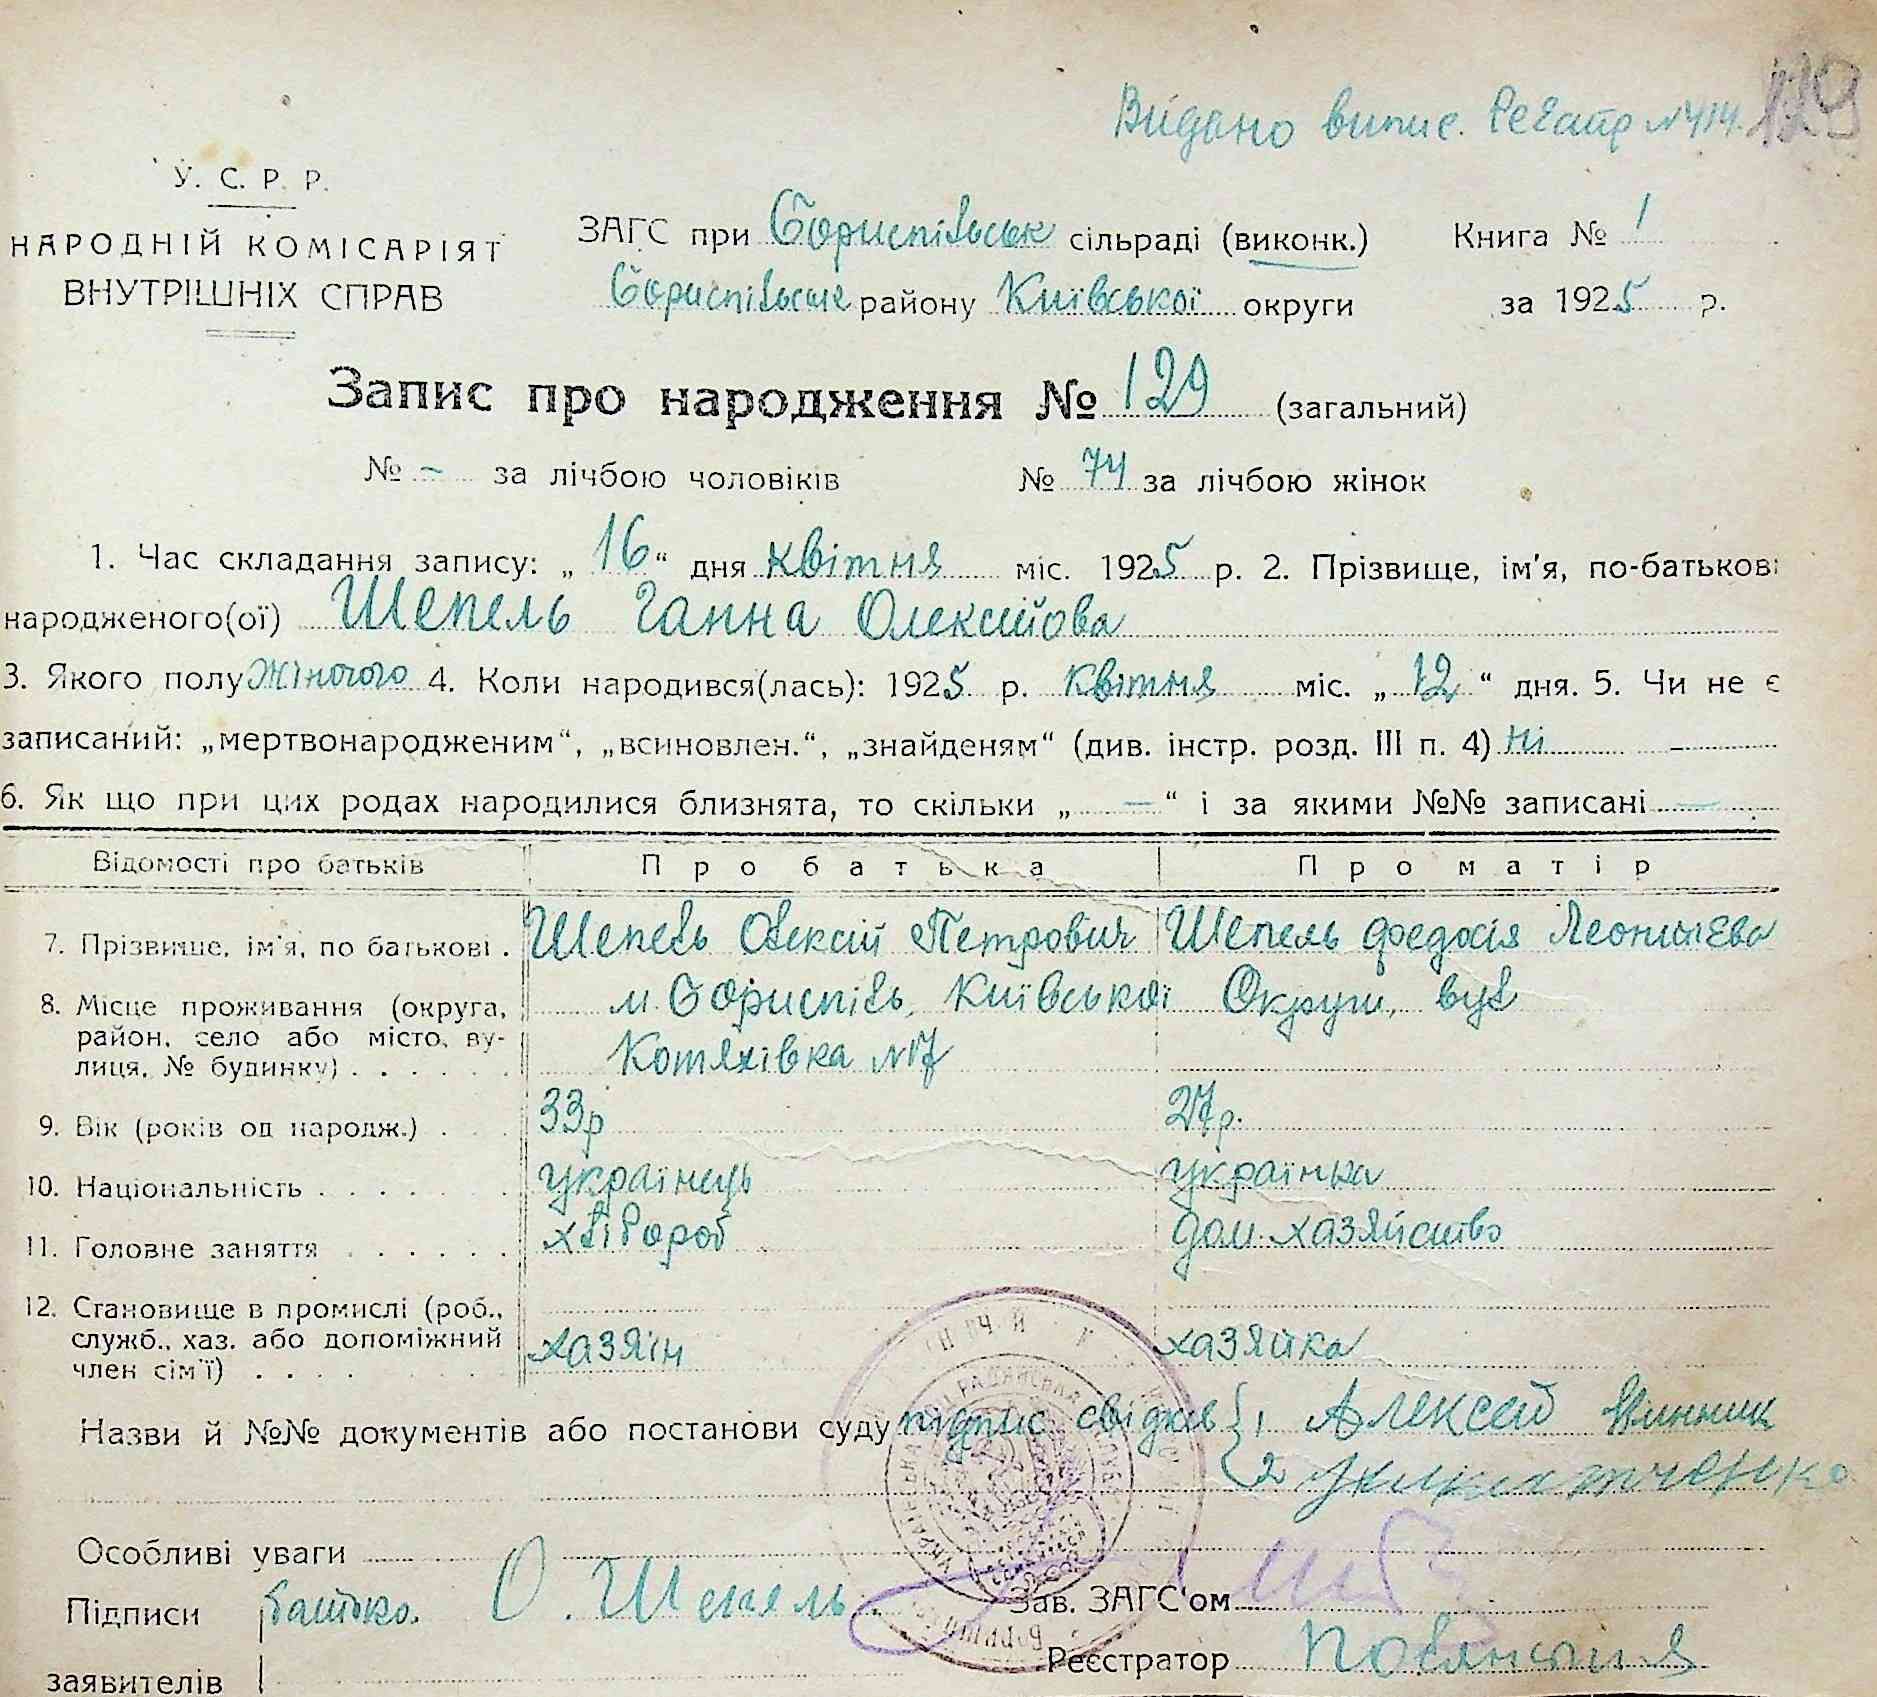 Видано випис. Реєстр №414. 129
У. С. Р. Р.
НАРОДНІЙ КОМІСАРІЯТ
ВНУТРІШНІХ СПРАВ
ЗАГС при Бориспільськ сільраді (виконк.) Книга № 1
Бориспільськ району Київської округи за 1925 р.
Запис про народження № 129 (загальний)
№ - за лічбою чоловіків № 74 за лічбою жінок
1. Час складання запису: „16“ дня квітня міс. 1925 р. 2. Прізвище, ім'я, по-батькові
народженого(ої) Шепель Ганна Олексійова
3. Якого полу Жіночого 4. Коли народився(лась): 1925 р. квітня міс. „12“ дня. 5. Чи не є
записаний: „мертвонародженим“, „всиновлен.“, „знайденям“ (див. інстр. розд. III п. 4) ні
6. Як що при цих родах народилися близнята, то скільки „—“ і за якими №№ записані —
Відомості про батьків Про батька Про матір
7. Прізвище, ім'я, по батькові . Шепель Олексій Петрович Шепель Федосія
8. Місце проживання (округа, район, село або місто, вулиця, № будинку) . . . . . . м. Бориспіль, Київської Округи, вул
Котляхівка №17
9. Вік (років од народж.) . . . 33р 27р.
10. Національність . . . . . . українець українка
11. Головне заняття . . . . . . хлібороб дом. хазяйство
12. Становище в промислі (роб., служб., хаз. або допоміжний член сім'ї) . . . . хазяін хазяйка
Назви й №№ документів або постанови суду підпис свідків { 1 Алексей Винник
2
Особливі уваги
Підписи батько. О. Шепель Зав. ЗАГС'ом
заявителів Реєстратор